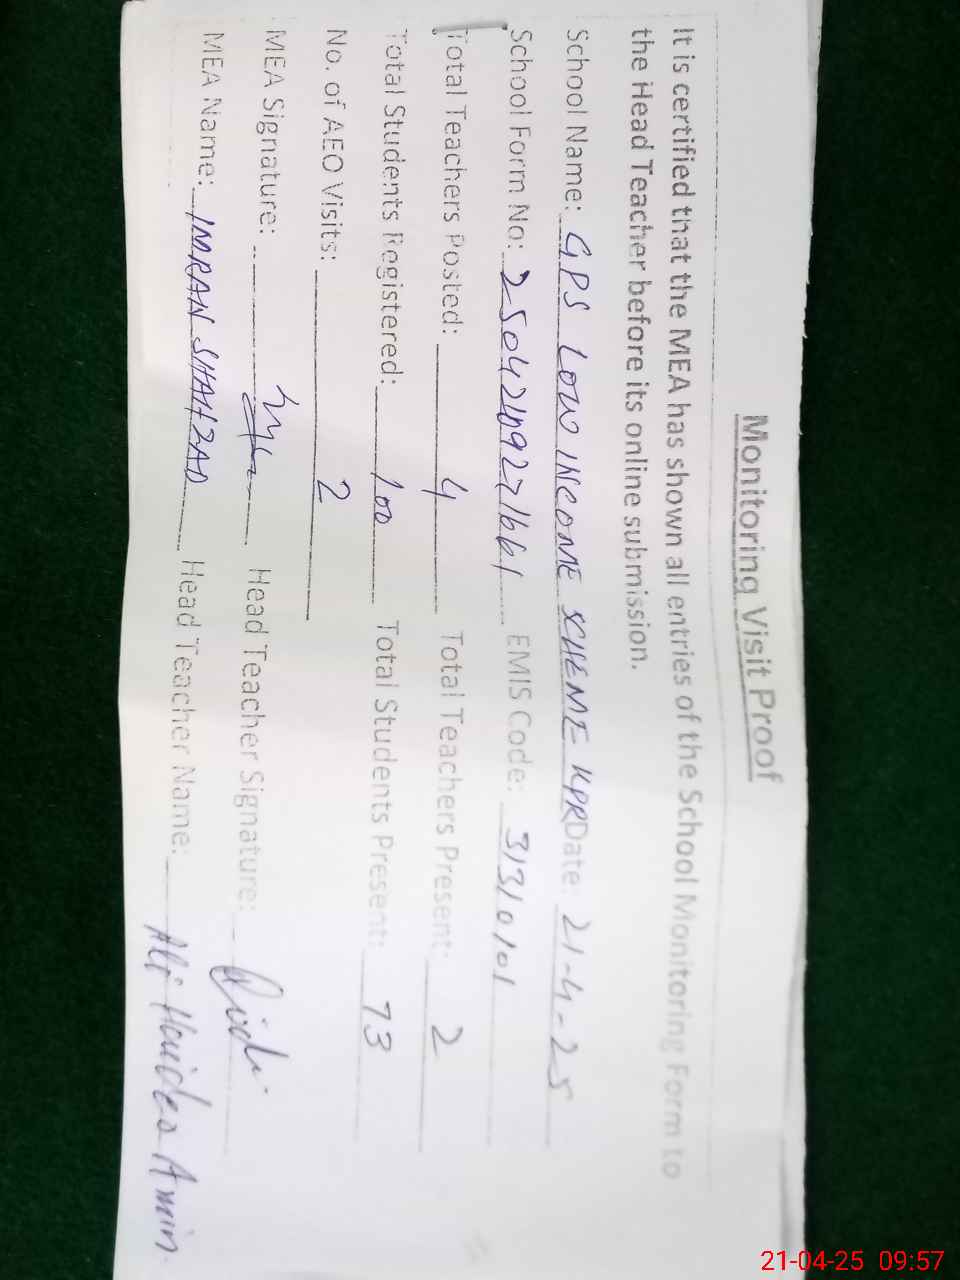 Monitoring Visit Proof
It is certified that the MEA has shown all entries of the School Monitoring Form to
the Head Teacher before its online submission.
School Name: GPS LOW INCOME SCHEME KPR Date: 21-4-25
School Form No: EMIS Code: 31310101
Total Teachers Posted: 4 Total Teachers Present: 2
Total Students Registered: 100 Total Students Present: 73
No. of AEO Visits: 2
MEA Signature: Head Teacher Signature:
MEA Name: IMRAN SHAHZAD Head Teacher Name: Ali Haider Amin
21-04-25 09:57